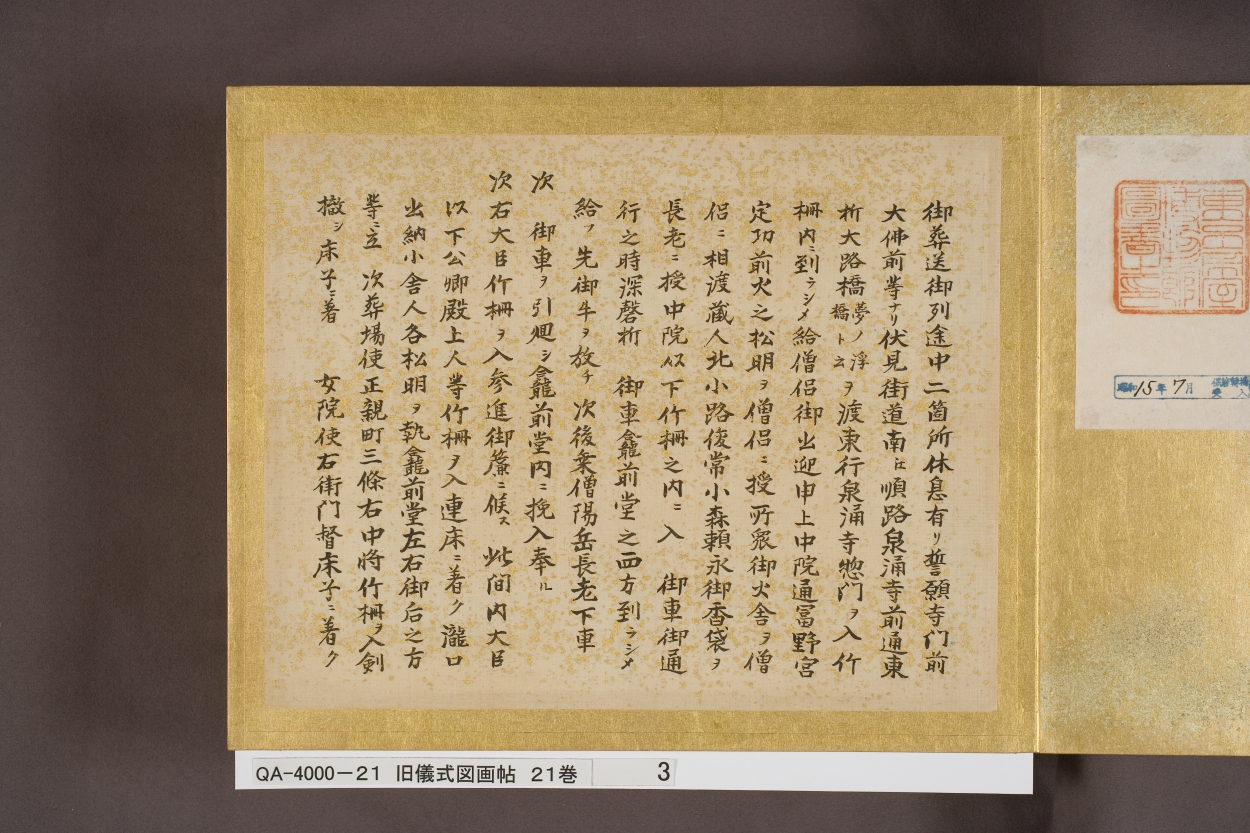 御葬送御列途中二箇所休息有リ誓願寺門前
大佛前等ナリ伏見街道南江順路泉涌寺前通東
折大路橋夢ノ浮橋ト云ヲ渡東行泉涌寺惣門ヲ入竹
柵内ニ到ラシメ給僧侶御出迎申上中院通冨野宮
定功前火之松明ヲ僧侶ニ授所衆御火舎ヲ僧
侶ニ相渡蔵人北小路俊常小森頼永御香袋ヲ
長老ニ授中院以下竹柵之内ニ入 御車御通
行之時深磬折 御車龕前堂之西方到ラシメ
給フ先御牛ヲ放チ次後乗僧陽岳長老下車
次 御車ヲ引廻シ龕前堂内ニ挽入奉ル
次右大臣竹柵ヲ入参進御簾ニ候ス 此间内大臣
以下公卿殿上人等竹柵ヲ入連床ニ着ク瀧口
出納小舎人各松明ヲ執龕前堂左右御后之方
等ニ立 次葬場使正親町三條右中将竹柵ヲ入剣
撤シ床子ニ著 女院使右衛門督床子ニ著ク
15年7月
QA-4000-21 旧儀式図画帖 21巻 3